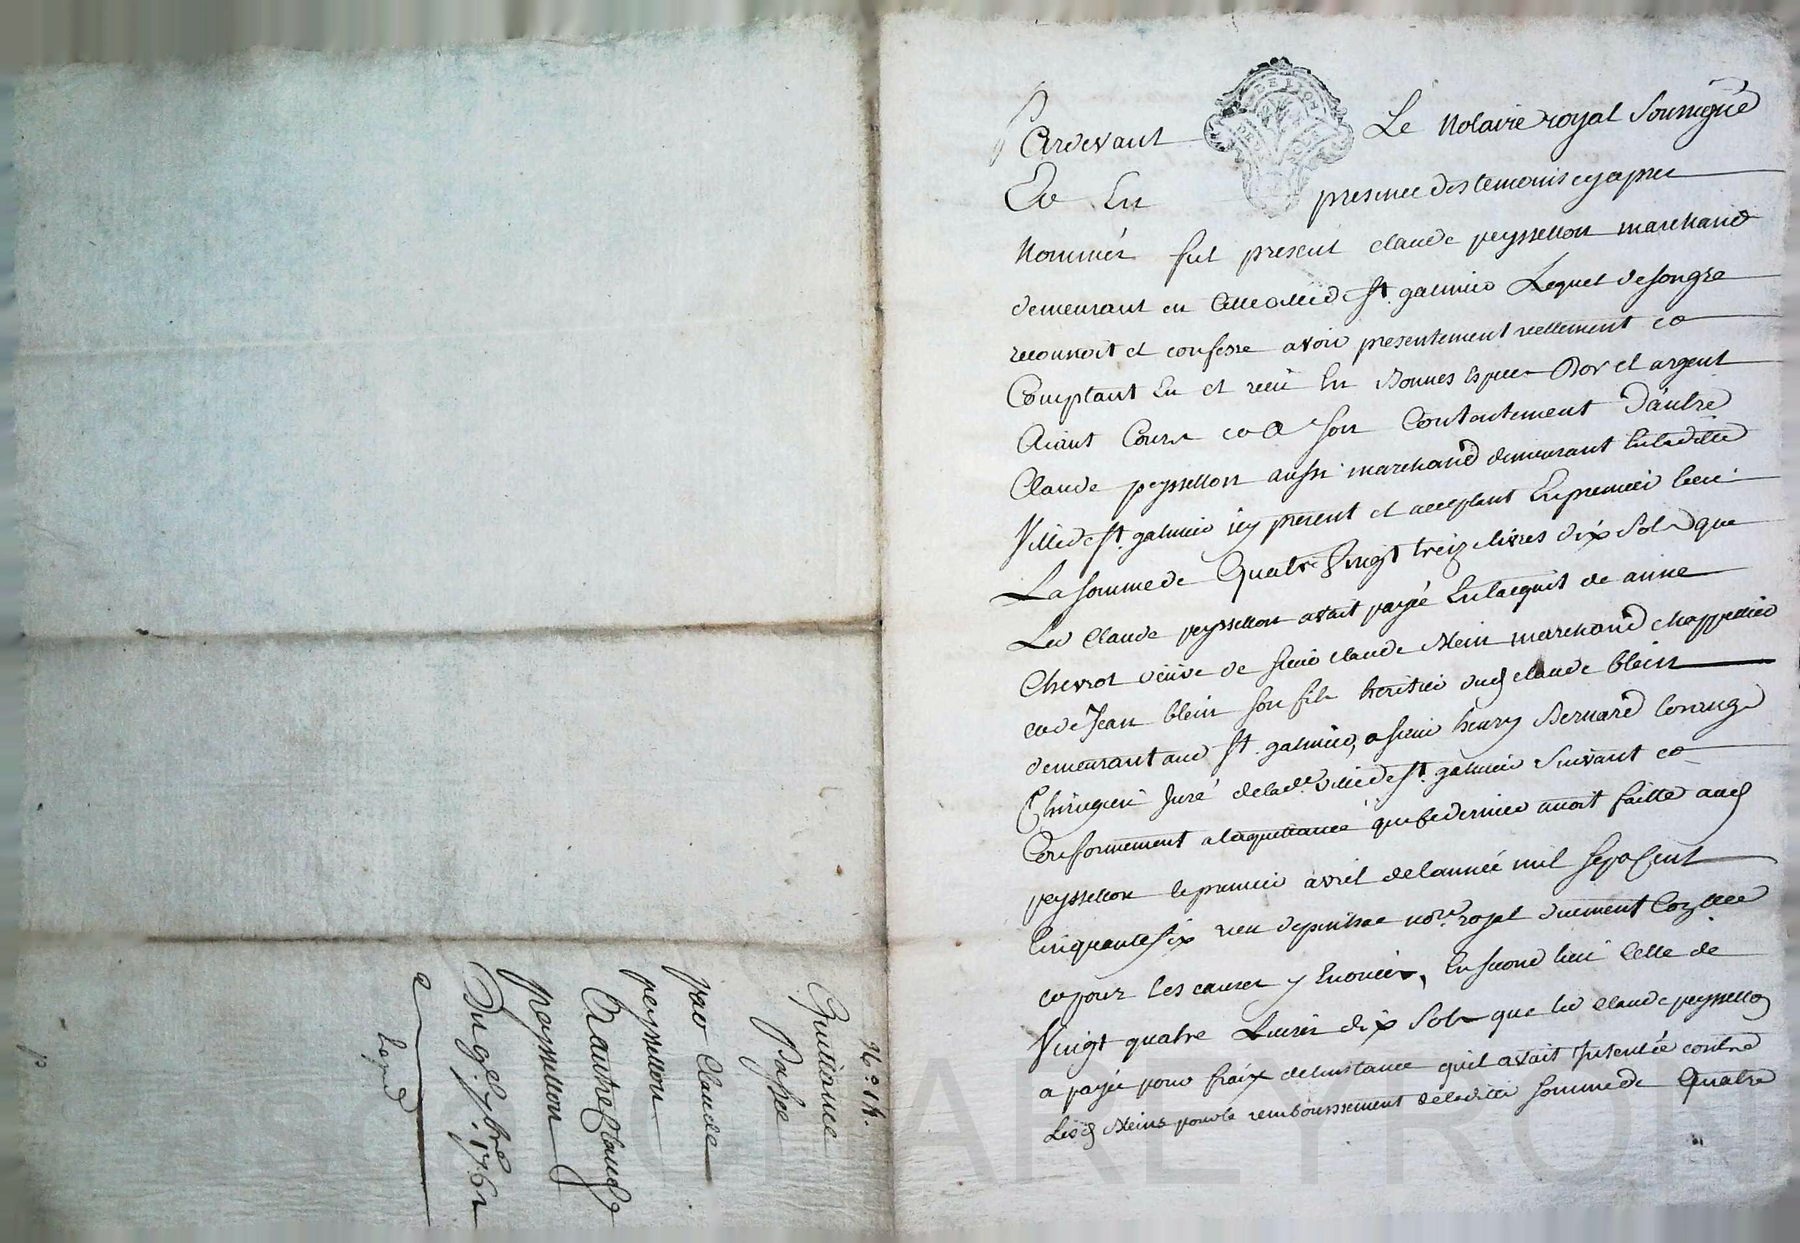 Pardevant Le Notaire royal Soussigné
Et En presence des temoins cy apres
Nommés fut present claude peyssellon marchand
demeurant en cette ville de St. galmier Lequel de son gre
reconnoit et confesse avoir presentement reellement et
Comptant Eu et receu En Bonnes Especes Dor et argent
Aiant Cours et a son Contentement D'autre
Claude peyssellon aussi marchand demeurant En ladite
Ville de St. galmier icy present et acceptant En premier lieu
La somme de Quatre Vingt treize livres dix Sols que
Led Claude peyssellon avait payée En lacquit de anne
Chevrot veuve de sieur claude Blein marchand chappellier
et de Jean blein son fils heritier dud claude blein
demeurant aud St. galmier, a sieur henry Bernard
Chirurgien Juré de lad. ville de St. galmier Suivant et
Conformement a la quittance que ce dernier avoit faitte aud
peyssellon le premier avril de l'année mil sept Cent
Cinquante six receu not. royal duement
et pour les causes y Enoncées, En second lieu Celle de
Vingt quatre Livres dix Sols que led claude peyssellon
a payée pour fraix de linstance quil avait Intentée contre
Lesd Bleins pour le remboursement de ladite somme de Quatre
Quittance
Passée
par Claude
peyssellon
A autre Claude
peyssellon
Du 9e. 7bre. 1762